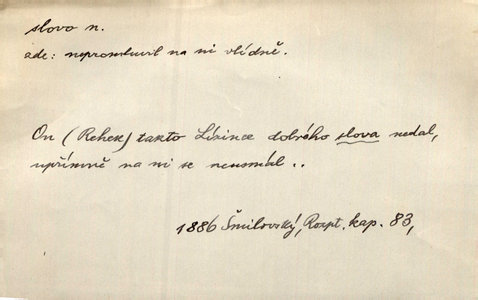 slovo n.
zde: nepromluvil na ni vlídně.
On (Rehek) takto Lízince dobrého slova nedal,
upřímně na ni se neusmál..
1886 Šmilovský, Rozpt. kap. 83,